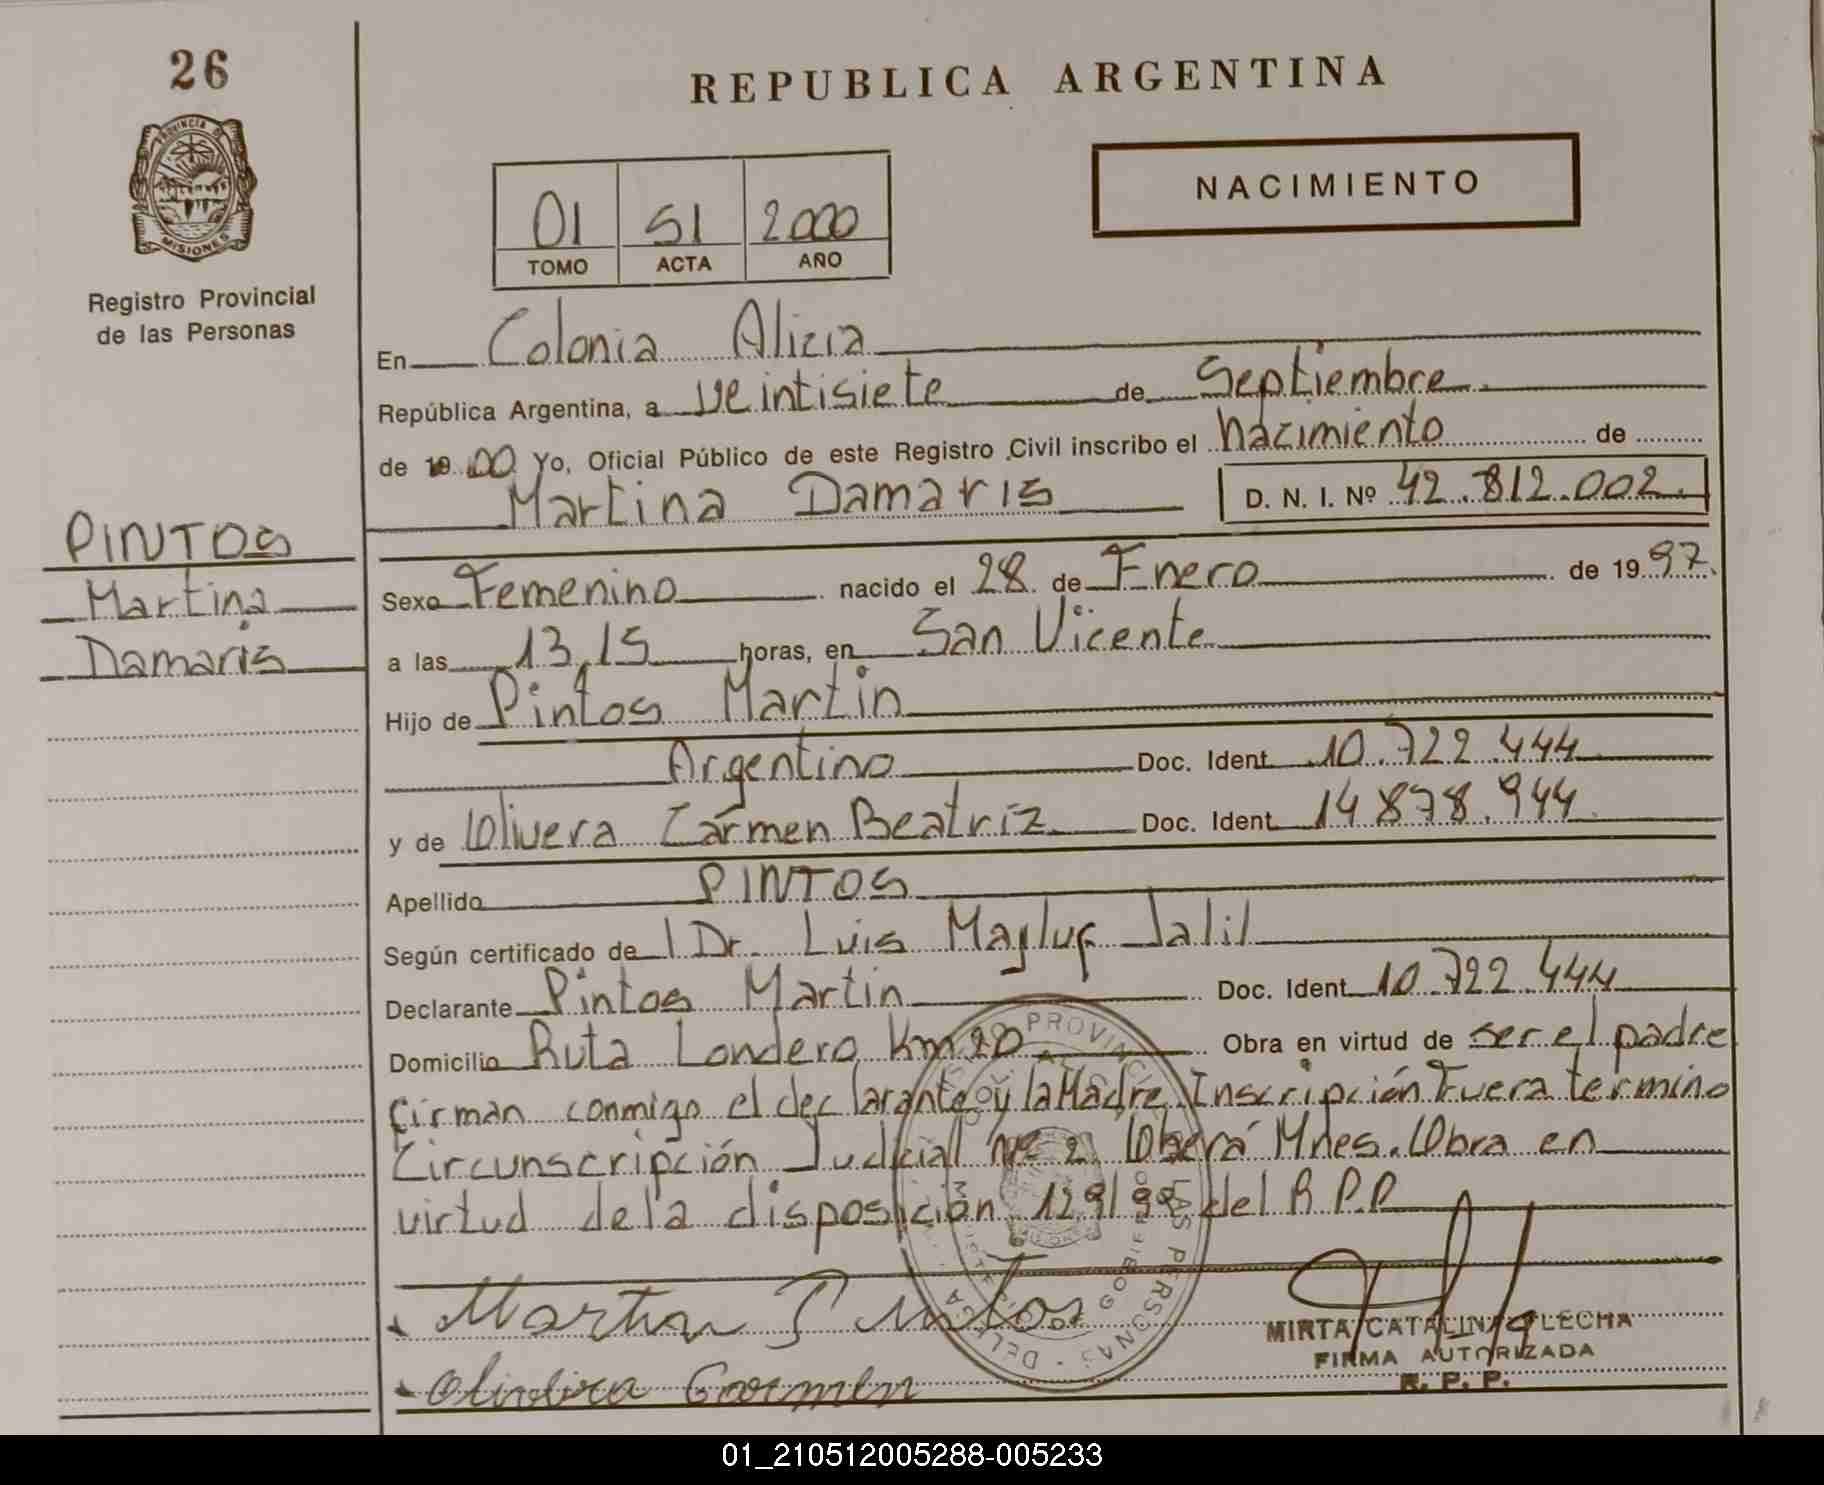 26
PROVINCIA DE
MISIONES
Registro Provincial
de las Personas
PINTOS
Martina
Damaris
REPUBLICA ARGENTINA
NACIMIENTO
01 51 2000
TOMO ACTA AÑO
En Colonia Alicia
República Argentina, a veintisiete de Septiembre
de 19 00 Yo, Oficial Público de este Registro Civil inscribo el nacimiento de
Martina Damaris D. N. I. Nº 42.812.002.
Sexo Femenino nacido el 28 de Enero de 1997.
a las 13,15 horas, en San Vicente
Hijo de Pintos Martin
Argentino Doc. Ident 10.722.444
y de Olivera Carmen Beatriz Doc. Ident 14 878.944
Apellido PINTOS
Según certificado de Dr. Luis Mayluf Jalil
Declarante Pintos Martin Doc. Ident 10.722.444
Domicilio Ruta Londero Km 20 Obra en virtud de ser el padre
firman conmigo el declarante y la Madre. Inscripción Fuera termino
Circunscripción Judicial Nº 2 Oberá Mnes. Obra en
virtud de la disposición 129/99 del R.P.P
Martin Pintos
Olivera Carmen
MIRTA CATALINA FLECHA
FIRMA AUTORIZADA
R. P. P.
01_210512005288-005233